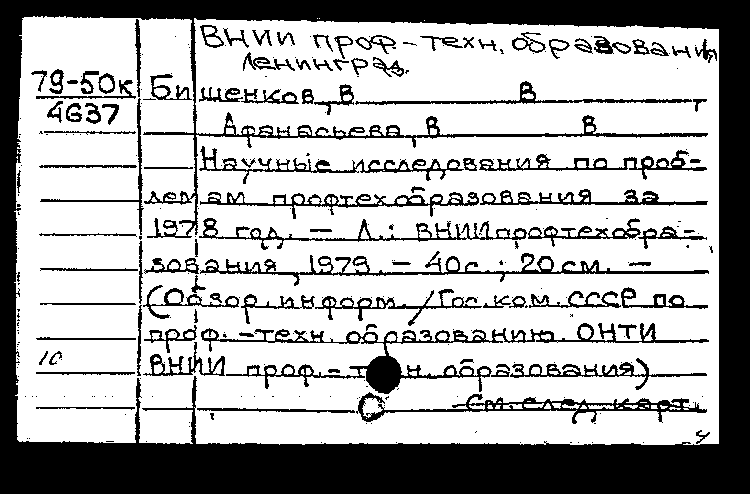 ВНИИ проф.-техн. образования
Ленинград.
79-50к Бишенков, В В
4637 Афанасьева, В В
Научные исследования по проб-
лемам профтехобразования за
1978 год. — Л.: ВНИИпрофтехобра-
зования, 1979. - 40с.; 20см. —
(Обзор. информ. / Гос. ком. СССР по
проф.-техн. образованию. ОНТИ
10 ВНИИ проф.- т н. образования)
См. след. карт.